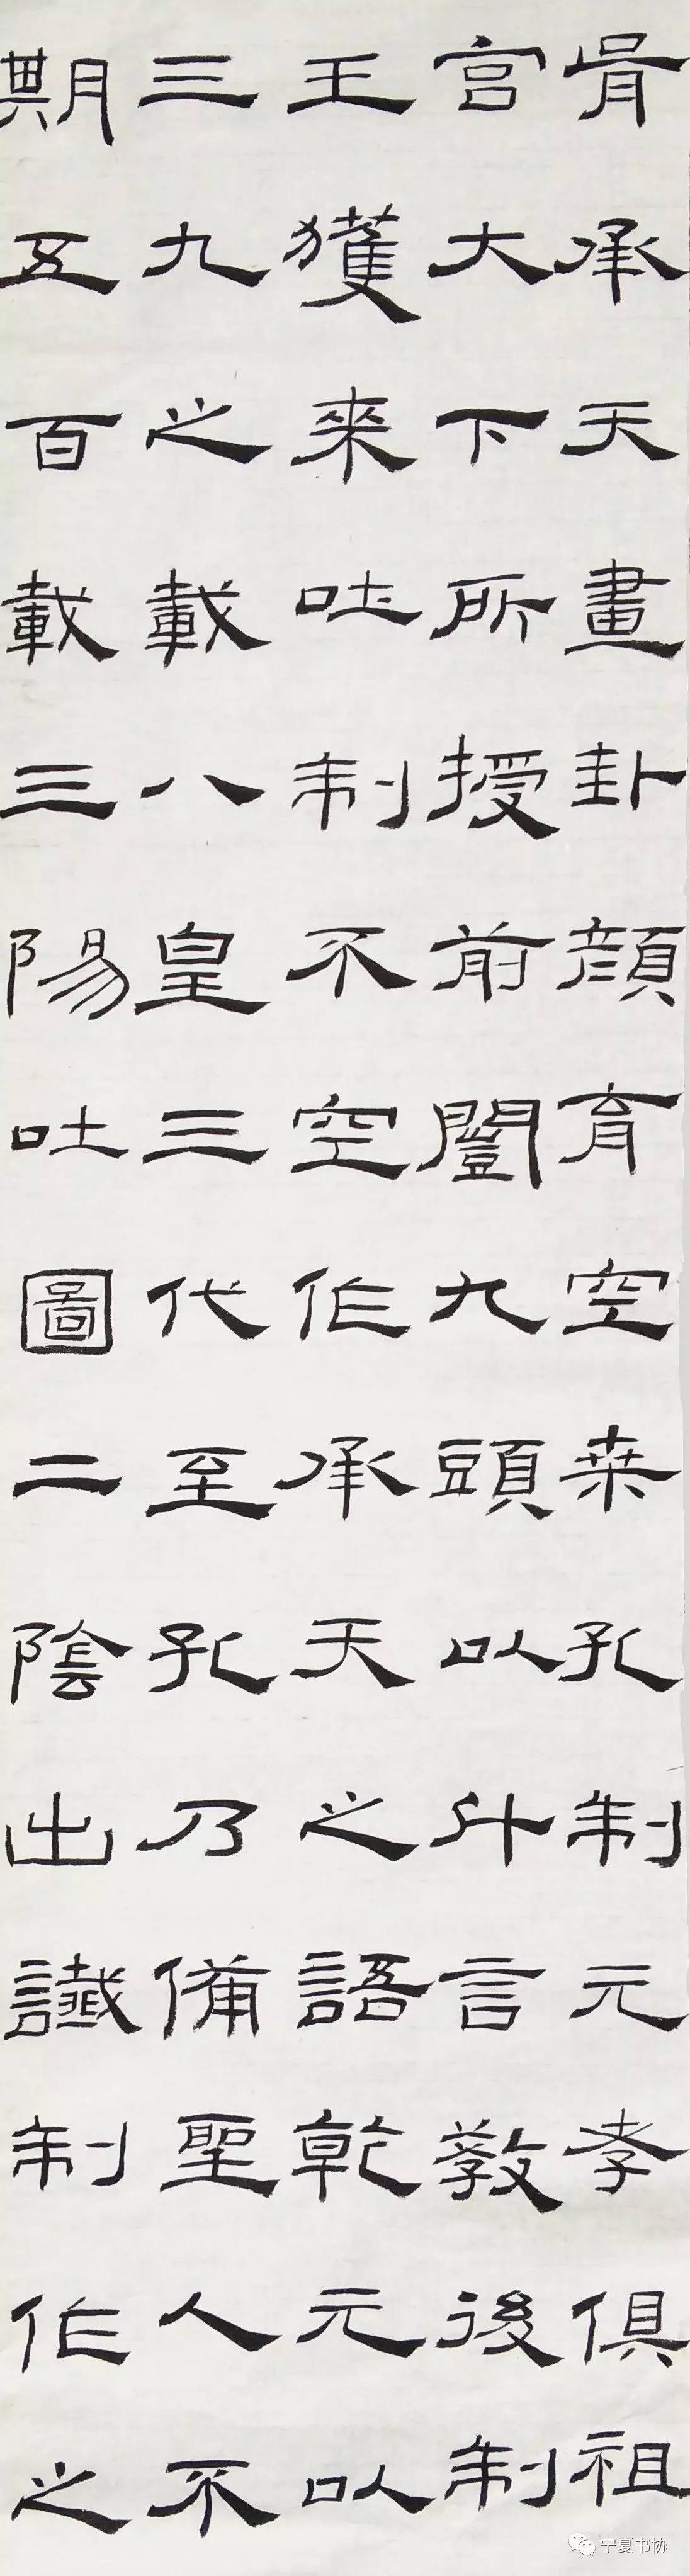 胥承天畫卦顏育空桒孔制元孝俱祖
宮大下所授前闓九頭以斗言教後制
王獲來吐制不空作承天之語乾元以
三九之載八皇三代至孔乃備聖人不
期五百載三陽吐圖二陰出讖制作之
宁夏书协